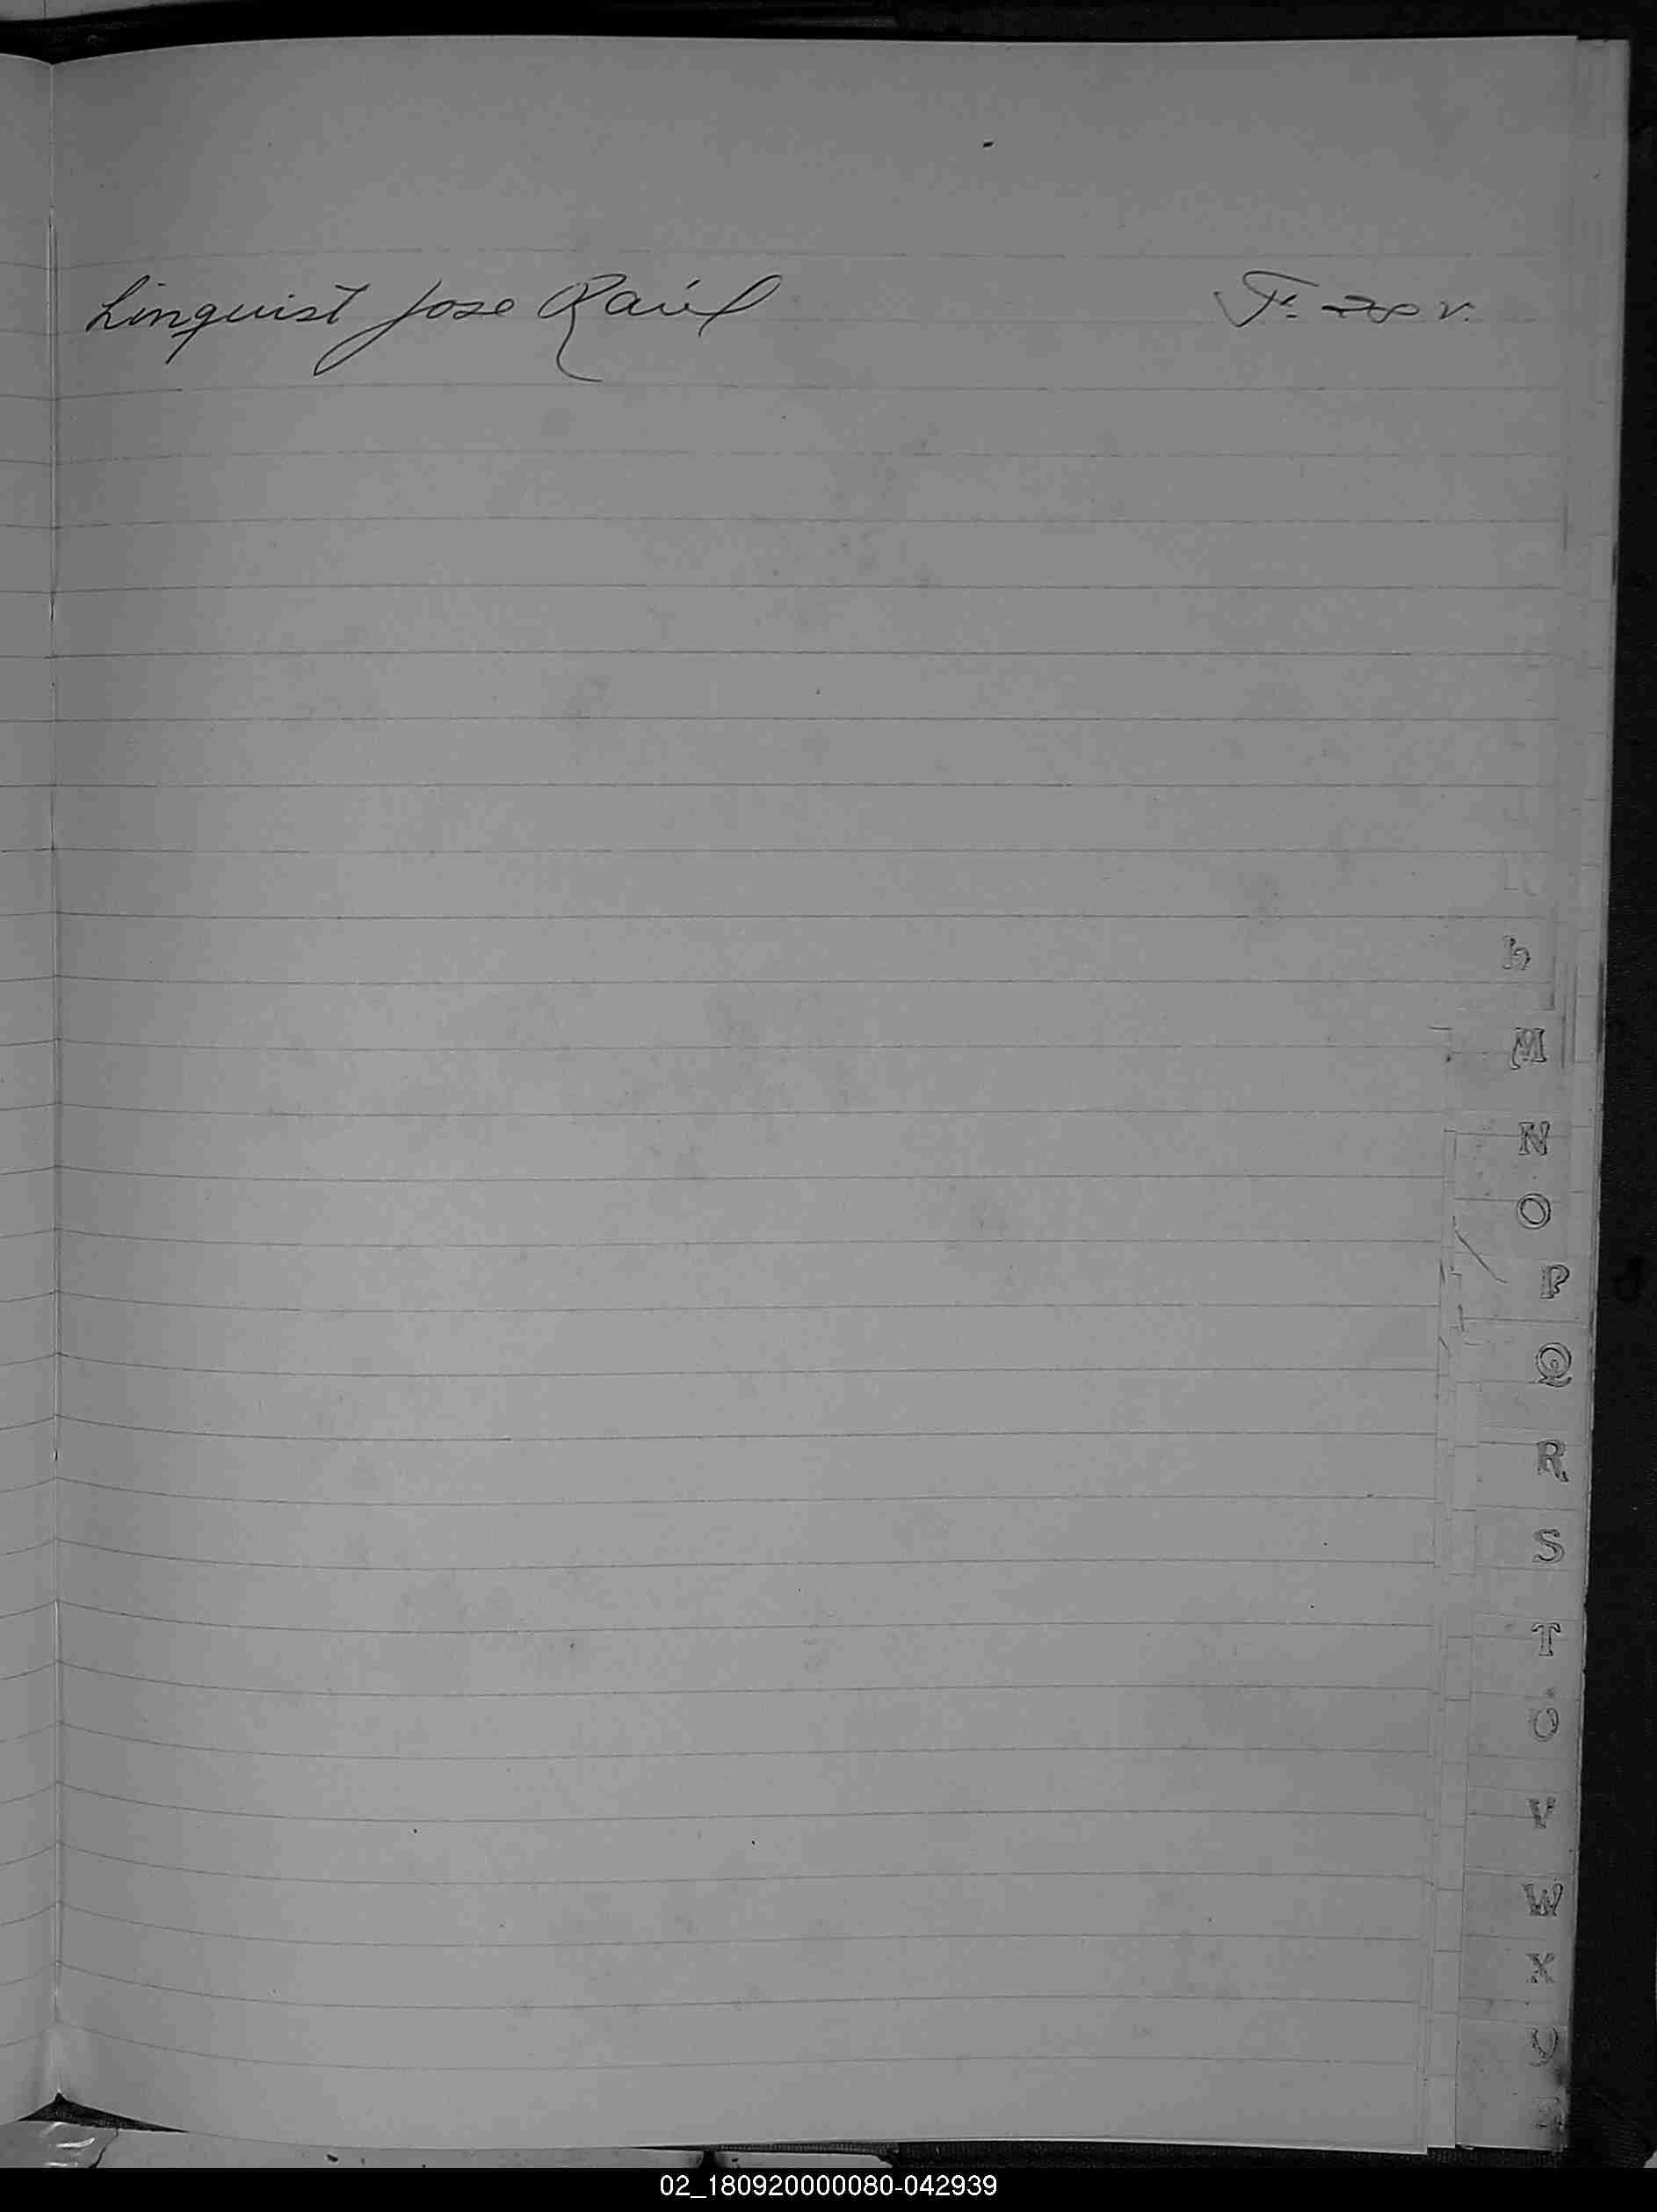 Linquist Jose Raúl F. 28 v.
L
M
N
O
P
Q
R
S
T
U
V
W
X
Y
Z
02_180920000080-042939